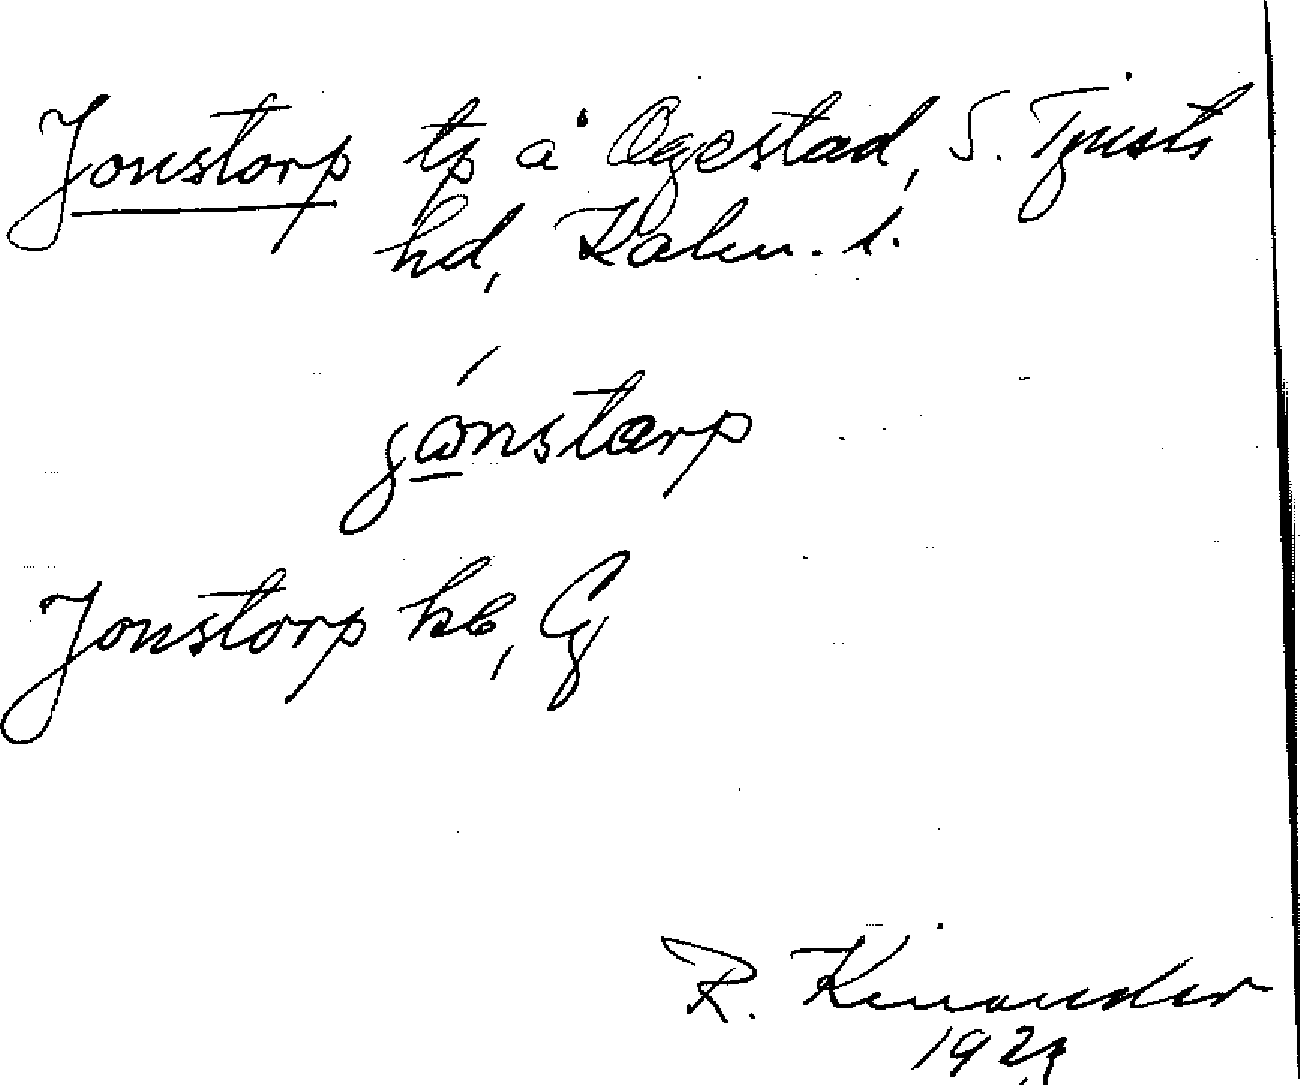 Jonstorp tp å Ogestad, S. Tjusts
hd, Kalm. l.
jɷnstɷrp
Jonstorp he, Cg
R. Kinander
192